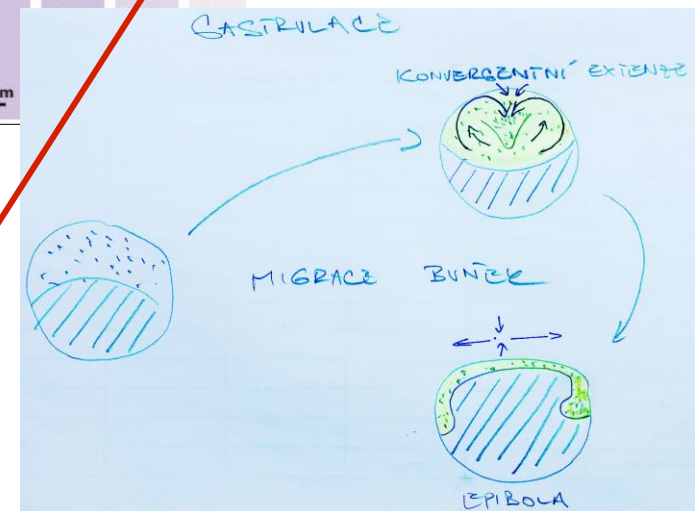 m
GASTRULACE
KONVERGENTNÍ EXTENZE
MIGRACE BUNĚK
EPIBOLA